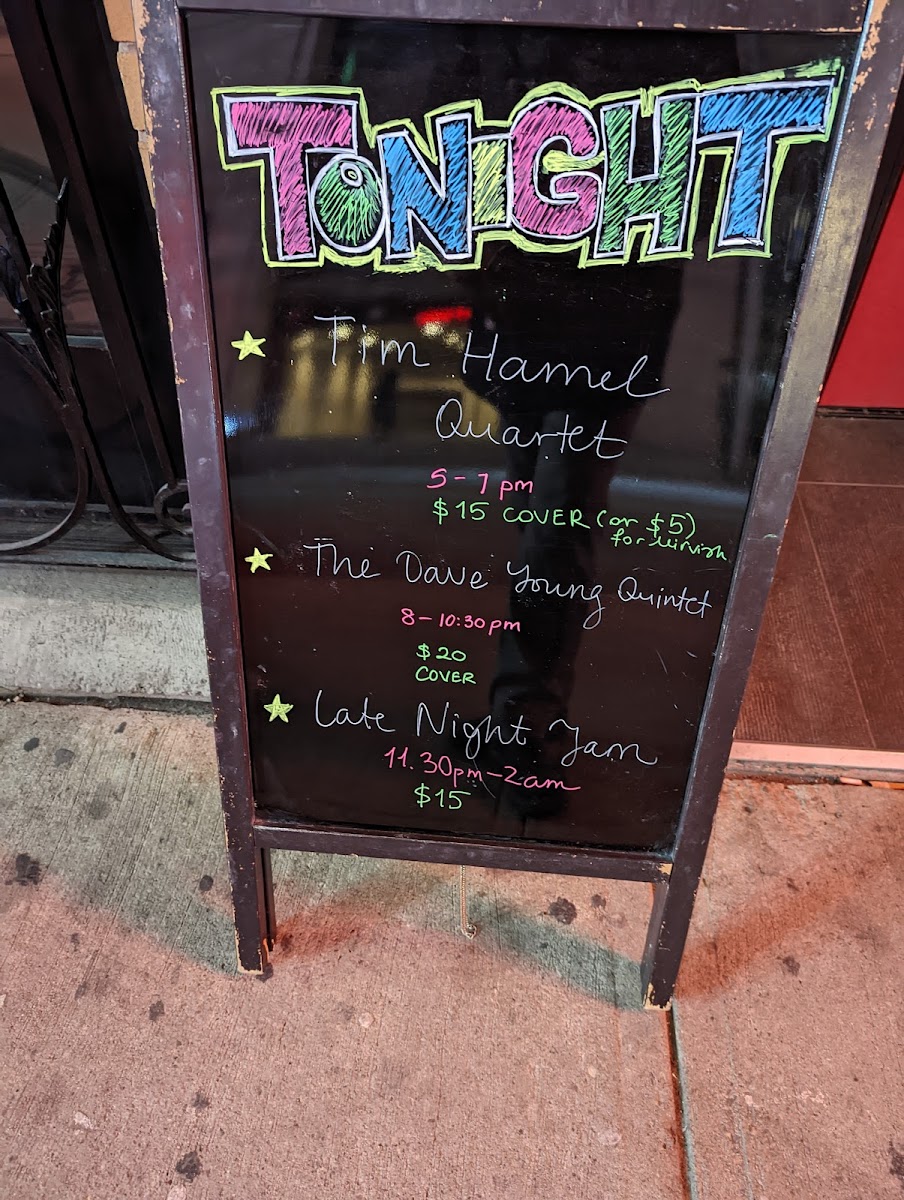 TONIGHT
Tim Hamel
Quartet
5-7 pm
$15 COVER (or $5)
for Mirvish
The Dave Young Quintet
8-10:30pm
$20
COVER
Late Night Jam
11.30pm-2am
$15